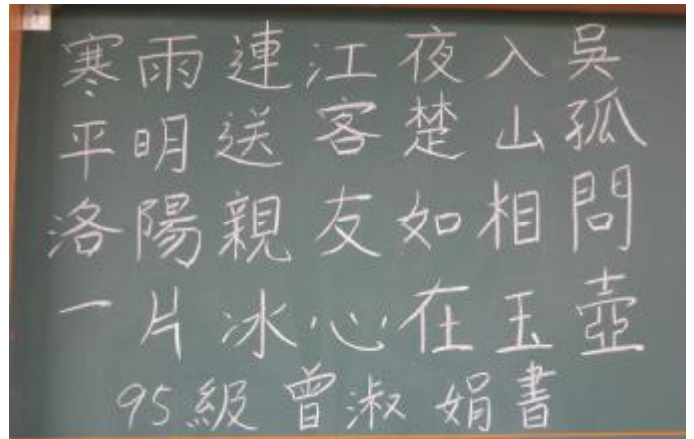 寒雨連江夜入吳
平明送客楚山孤
洛陽親友如相問
一片冰心在玉壺
95級 曾淑娟書